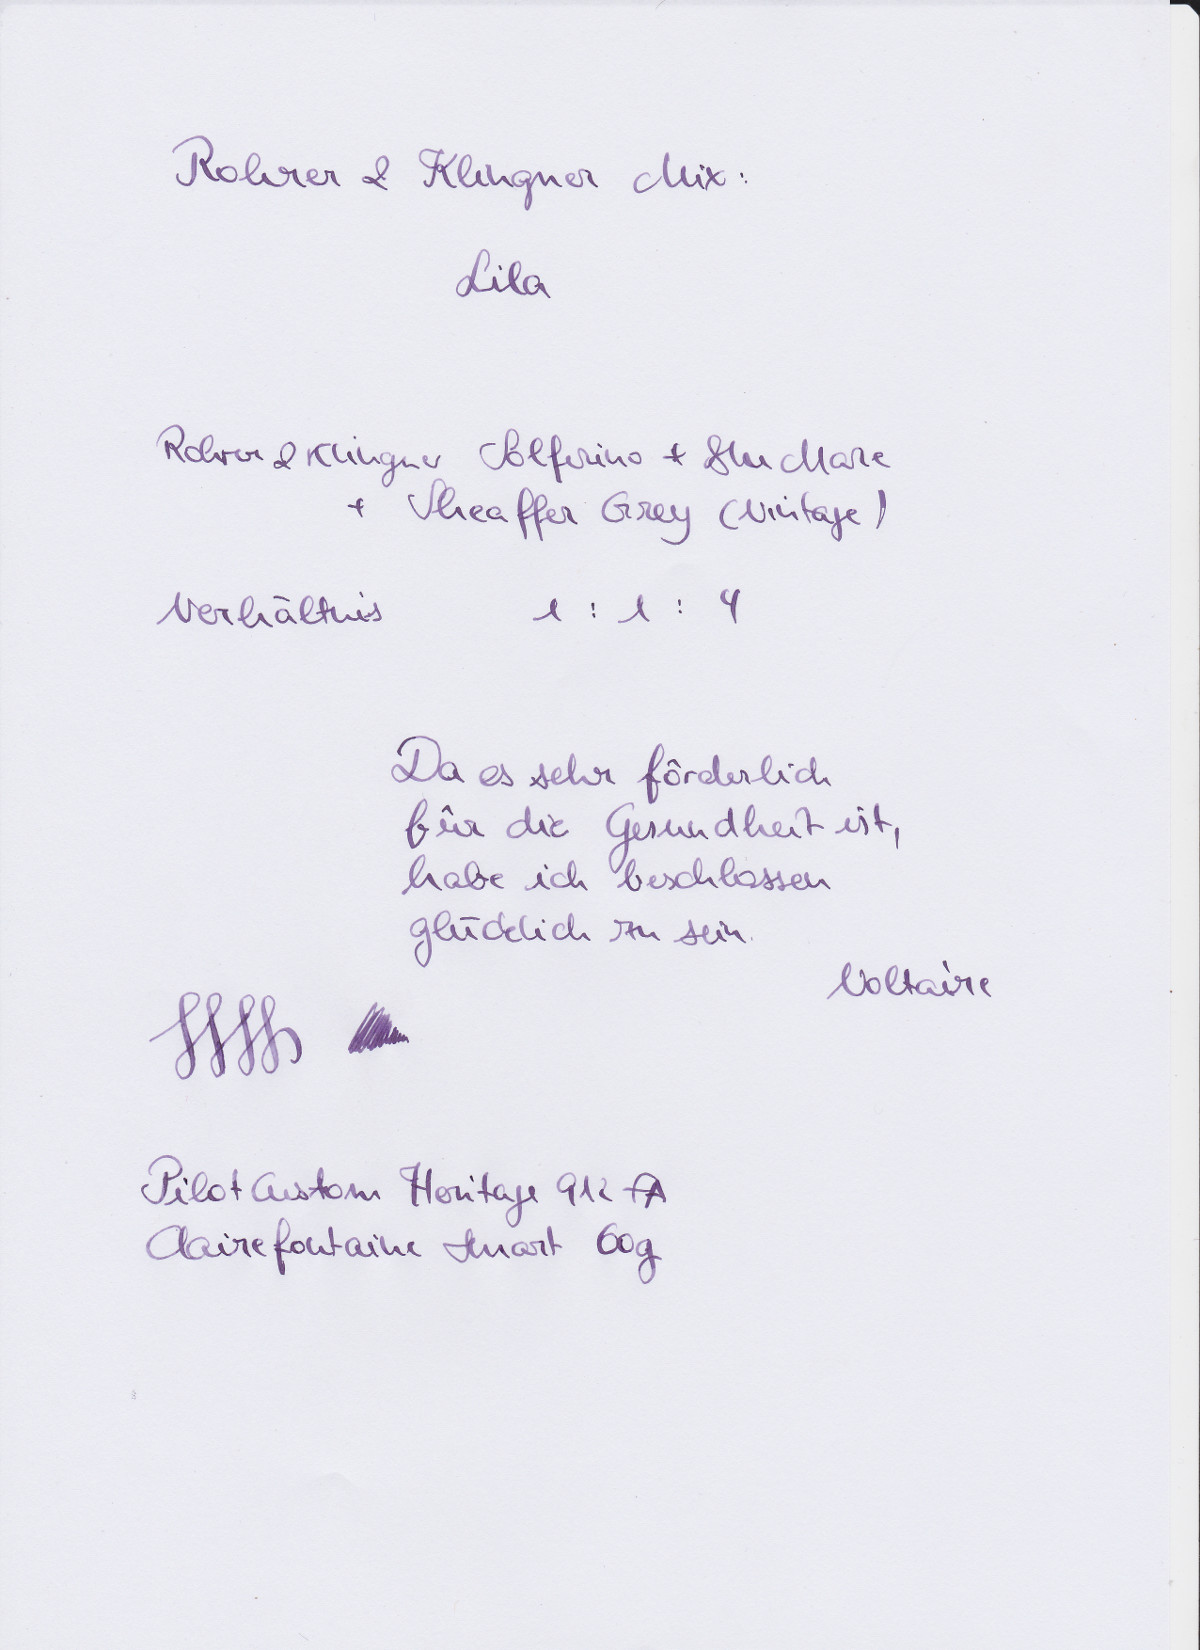 Rohrer & Klingner Mix:
Lila
Rohrer & Klingner Solferino + Blu Mare
+ Sheaffer Grey (Vintage)
Verhältnis 1 : 1 : 4
Da es sehr förderlich
für die Gesundheit ist,
habe ich beschlossen
glücklich zu sein.
Voltaire
Pilot Custom Heritage 912 FA
Clairefontaine Smart 60g